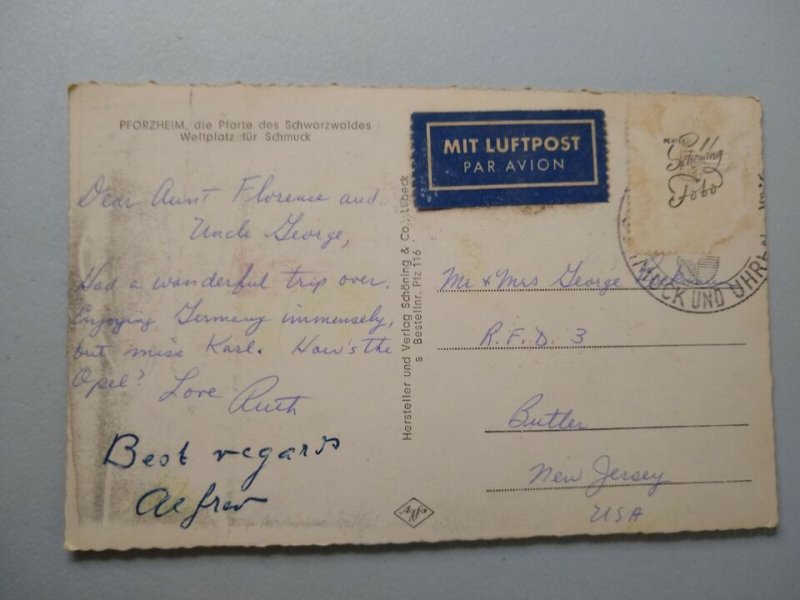 PFORZHEIM, die Pforte des Schwarzwaldes
Weltplatz für Schmuck
Dear Aunt Florence and
Uncle George,
Had a wonderful trip over.
Enjoying Germany immensely,
but miss Karl. How's the
Opel? Love Ruth
Best regards
Alfred
Hersteller und Verlag Schöning & Co., Lübeck
s Bestellnr. Pfz 116
MIT LUFTPOST
PAR AVION
Schöning
Foto
MUCK UND UHREN
Mr & Mrs George
R.F.D. 3
Butler
New Jersey
USA
Agfa